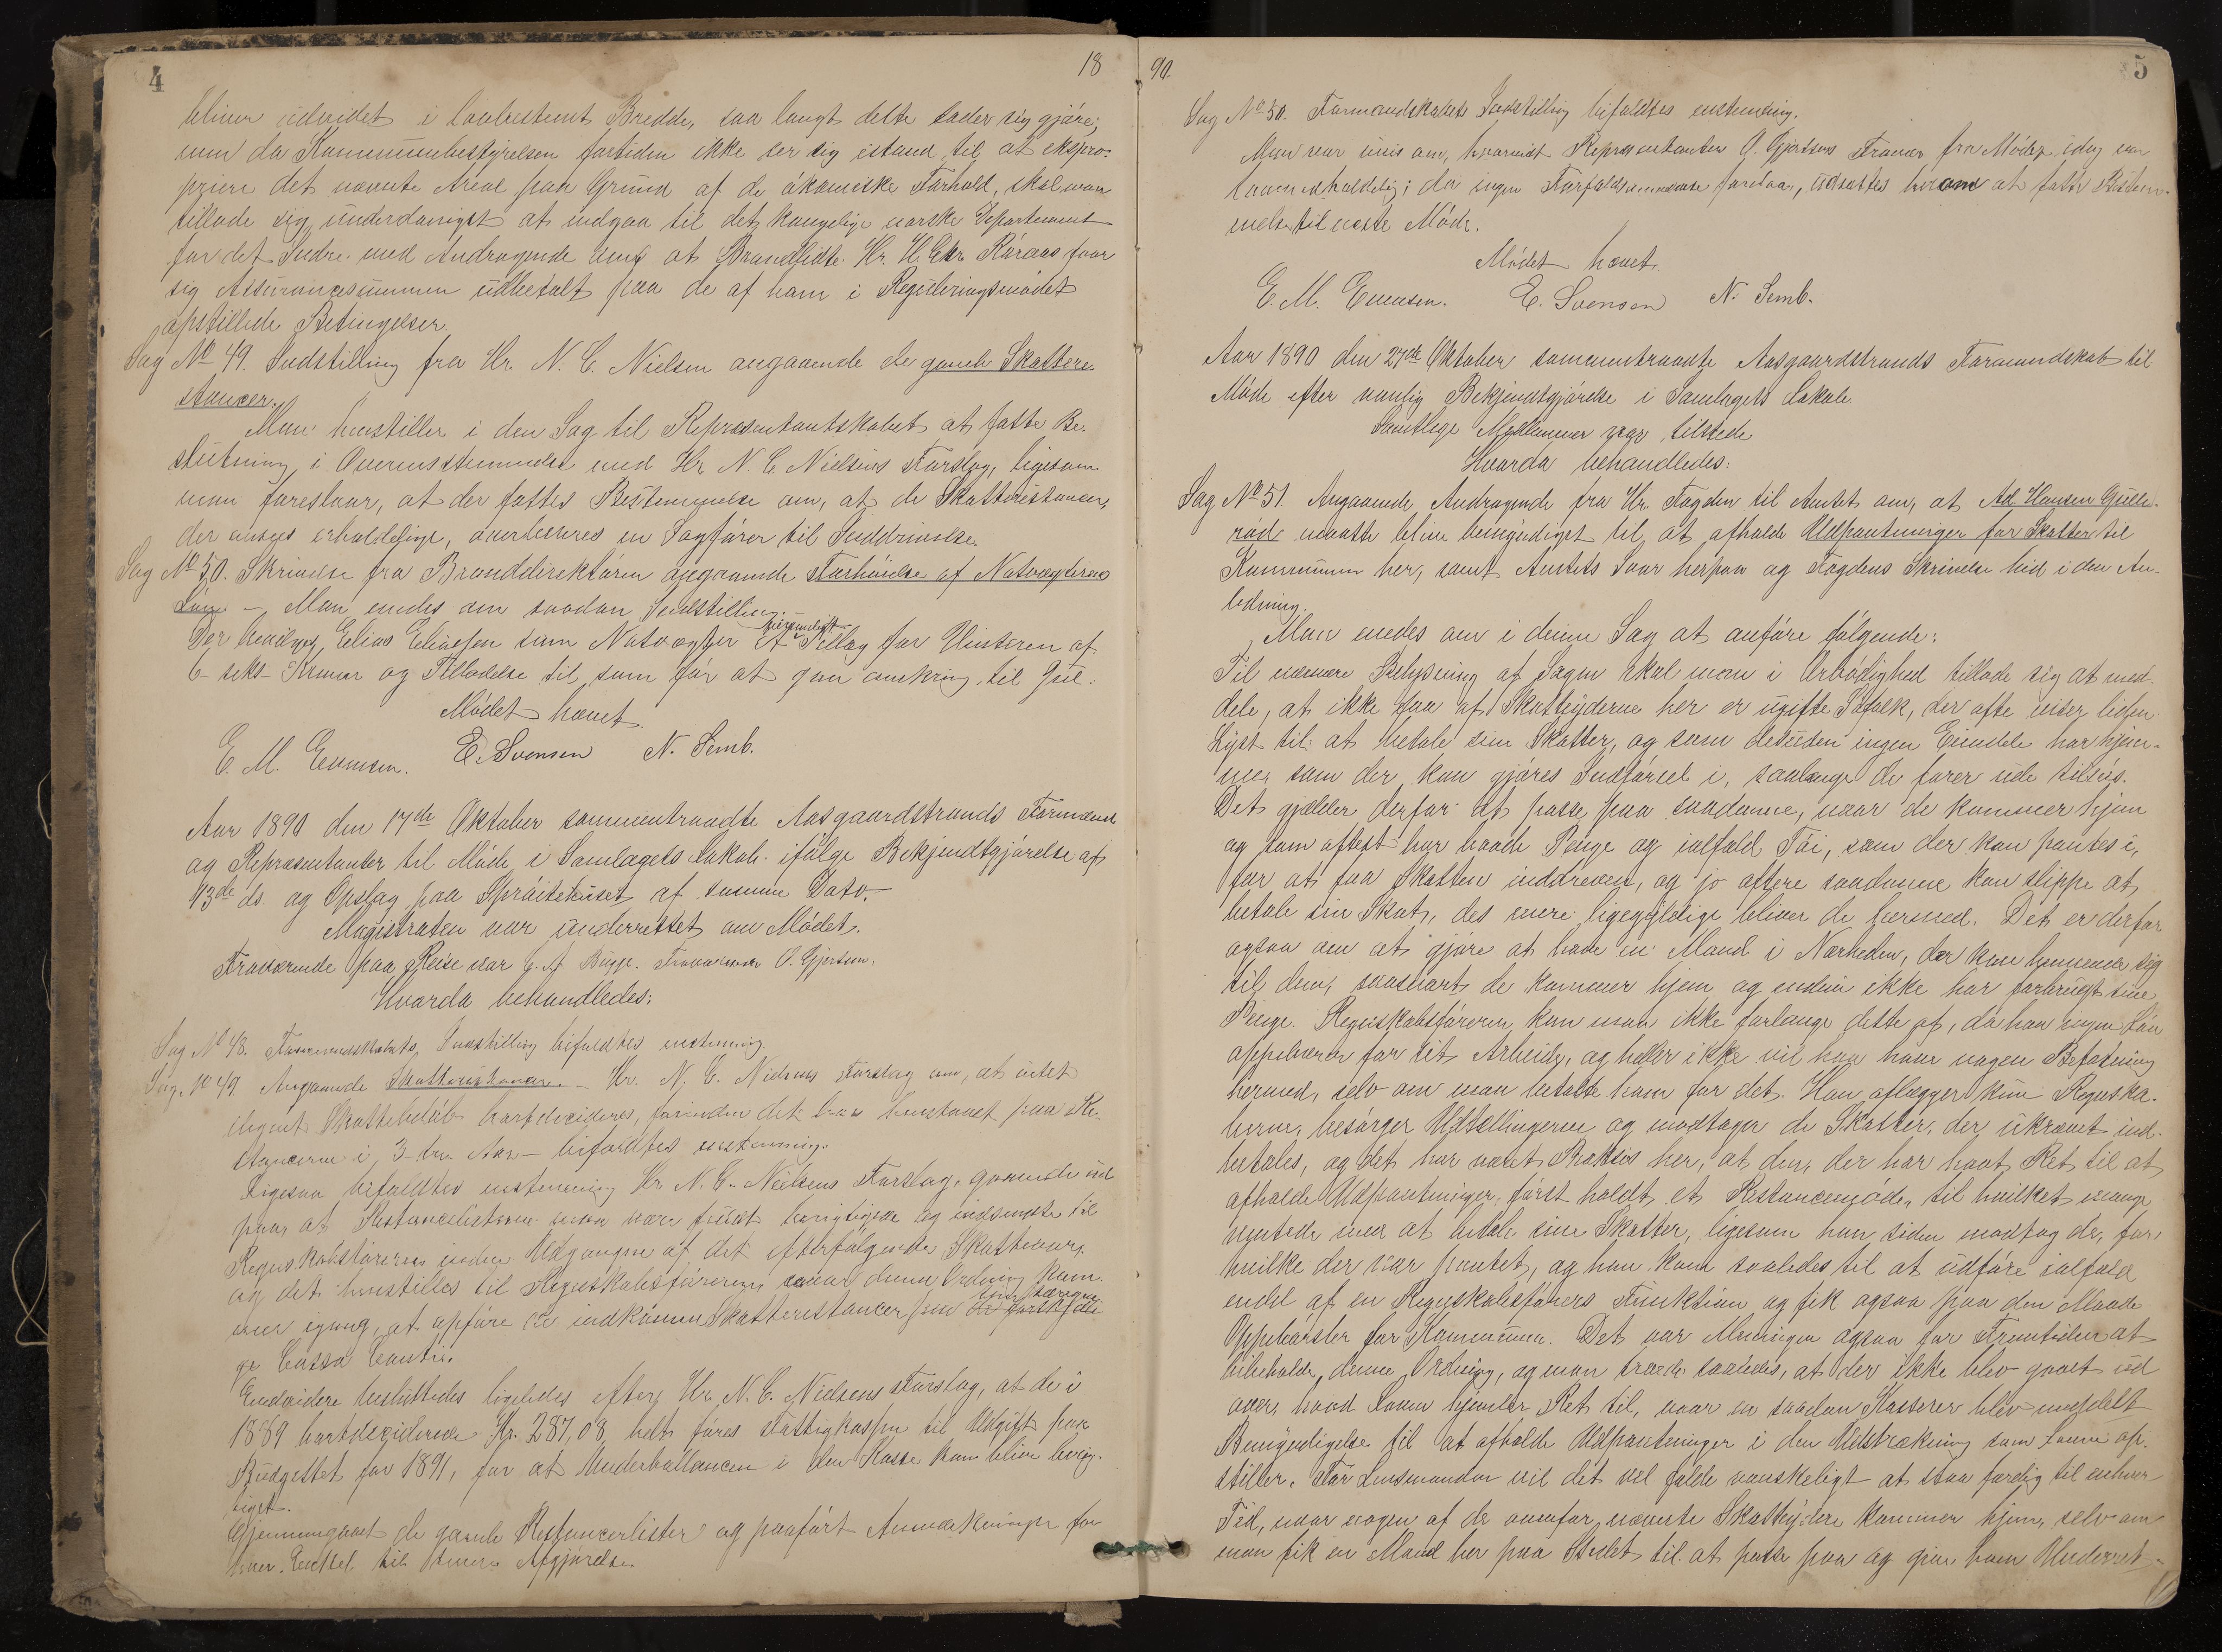 4
18
bliver udvidet i lovbestemt Bredde, saa langt dette lader sig gjøre;
men da Kommunebestyrelsen fortiden ikke ser sig istand til at ekspro-
priere det nævnte Areal paa Grund af de økonomiske Forhold, skal man
tillade sig underdanigst at indgaa til det kongelige norske Departement
for det Indre med Andragende om, at Brandlidte Hr. H. Chr. faar
sig Assurancesummen udbetalt paa de af ham i Reguleringsmødet
opstillede Betingelser.
Sag No 49. Indstilling fra Hr. N. C. Nielsen angaaende de gamle Skattere-
stancer.
Man henstiller i den Sag til Repræsentantskabet at fatte Be-
slutning i Overensstemmelse med Hr N. C. Nielsens Forslag, ligesom
man foreslaar, at der fattes Bestemmelse om, at de Skatterestancer,
der ansees erholdelige, overleveres en Sagfører til Inddrivelse.
Sag No 50. Skrivelse fra Branddirektøren angaaende Forhøielse af Natvægterens
Løn – Man enedes om saadan Indstilling:
Der bevilges Elias Eliassen som Natvægter et Tillæg for Vinteren af
6 – seks – Kroner og Tilladelse til som før at gaa omkring til Jul.
Mødet hævet.
E. M. Evensen. E. Svensen N. Semb.
Aar 1890 den 17de Oktober sammentraadte Aasgaardstrands Formænd
og Repræsentanter til Møde i Samlagets Lokale ifølge Bekjendtgjørelse af
13de ds. og Opslag paa Sprøitehuset af samme Dato.
Magistraten var underrettet om Mødet.
Fraværende paa Reise var Bugge. Fraværende O. Gjertsen.
Hvorda behandledes:
Sag No 48. Formandskabets Indstilling bifaldtes enstemmig.
Sag No 49 Angaaende Skatterestancer. – Hr. N. C. Nielsens Forslag om, at intet
Skattebeløb bortdecideres, forinden det har henstaaet paa Re-
stancerne i 3 – tre Aar – bifaldtes enstemmig.
Ligesaa bifaldtes enstemmig Hr. N. C. Nielsens Forslag, gaaende ud
paa, at Restancelisterne maa være fuldt berigtigede og indsendte til
Regnskabsføreren inden Udgangen af det efterfølgende Skatteaar,
og det henstilles til Regnskabsføreren, naar denne Ordning kom-
mer igang, at opføre de indkomne Skatterestancer
ge Cassa Conti.
Endvidere besluttedes ligeledes efter Hr. N. C. Nielsens Forslag, at de i
1889 bortdeciderede Kr. 287,08 helt føres Fattigkassen til Udgift paa
Budgettet for 1891, for at Underballancen i den Kasse kan blive berig-
tiget.
Gjennemgaaet de gamle Restancerlister og paaført Anmærkninger for
hver Enkelt til Afgjørelse.
90.
5
Sag No 50. Formandskabets Indstilling bifaldtes enstemmig.
Man var uvis om, hvorvidt Repræsentanten O. Gjertsens Fravær fra Mødet idag var
lovmedholdelig; da ingen forelaa, udsattes herom at fatte Bestem-
melse til næste Møde.
Mødet hævet.
E. M. Evensen. E. Svensen N. Semb.
Aar 1890 den 27de Oktober sammentraadte Aasgaardstrands Formandskab til
Møde efter vanlig Bekjendtgjørelse i Samlagets Lokale.
Samtlige Medlemmer vare tilstede
Hvorda behandledes:
Sag No 51. Angaaende Andragende fra Hr. Fogden til Amtet om, at Ad. Hansen Gulle-
rød maatte blive bemyndiget til at afholde Udpantninger for Skatter til
Kommunen her, samt Amtets Svar herpaa og Fogdens Skrivelse hid i den An-
ledning.
Man enedes om i denne Sag at anføre følgende:
Til nærmere Belysning af Sagen skal man i Ærbødighed tillade sig at med-
dele, at ikke faa af Skatteyderne her er ugifte Søfolk, der ofte viser liden
Lyst til at betale sine Skatter, og som desuden ingen Eiendele har hjem-
me, som der kan gjøres Indførsel i, saalænge de farer ude tilsøs.
Det gjælder derfor at passe paa saadanne, naar de kommer hjem
og som oftest har baade Penge og ialfald Tøi, som der kan pantes i,
for at faa Skatten inddreven, og jo oftere saadanne kan slippe at
betale sin Skat, des mere ligegyldige bliver de hermed. Det er derfor
ogsaa om at gjøre at have en Mand i Nærheden, der kan henvende sig
til dem, saasnart de kommer hjem og endnu ikke har forbrugt sine
Penge. Regnskabsføreren kan man ikke forlange dette af, da han ingen Løn
oppebærer for sit Arbeide, og heller ikke vil han have nogen Befatning
hermed, selv om man betalte ham for det. Han aflægger kun Regnska-
berne, besørger Udtællingerne og modtager de Skatter, der ukrævet ind-
betales, og det har været Praksis her, at den, der har havt Ret til at
afholde Udpantninger, først holdt et Restancemøde, til hvilket mange
ventede med at betale sine Skatter, ligesom han siden modtog de, for
hvilke der var pantet, og han kom saaledes til at udføre ialfald
endel af en Regnskabsførers Funktion og fik ogsaa paa den Maade
Oppebørsler for Kommunen. Det var Meningen ogsaa for Fremtiden at
bibeholde denne Ordning, og man troede saaledes, at der ikke blev gaaet ud
over, hvad Loven hjemler Ret til, naar en saadan Kasserer blev meddelt
Bemyndigelse til at afholde Udpantninger i den Udstrækning som Loven op-
stiller. For Lensmanden vil det vel falde vanskeligt at staa færdig til enhver
Tid, naar nogen af de ovenfor nævnte Skatteydere kommer hjem, selv om
man fik en Mand her paa Stedet til at passe paa og give ham Underret-